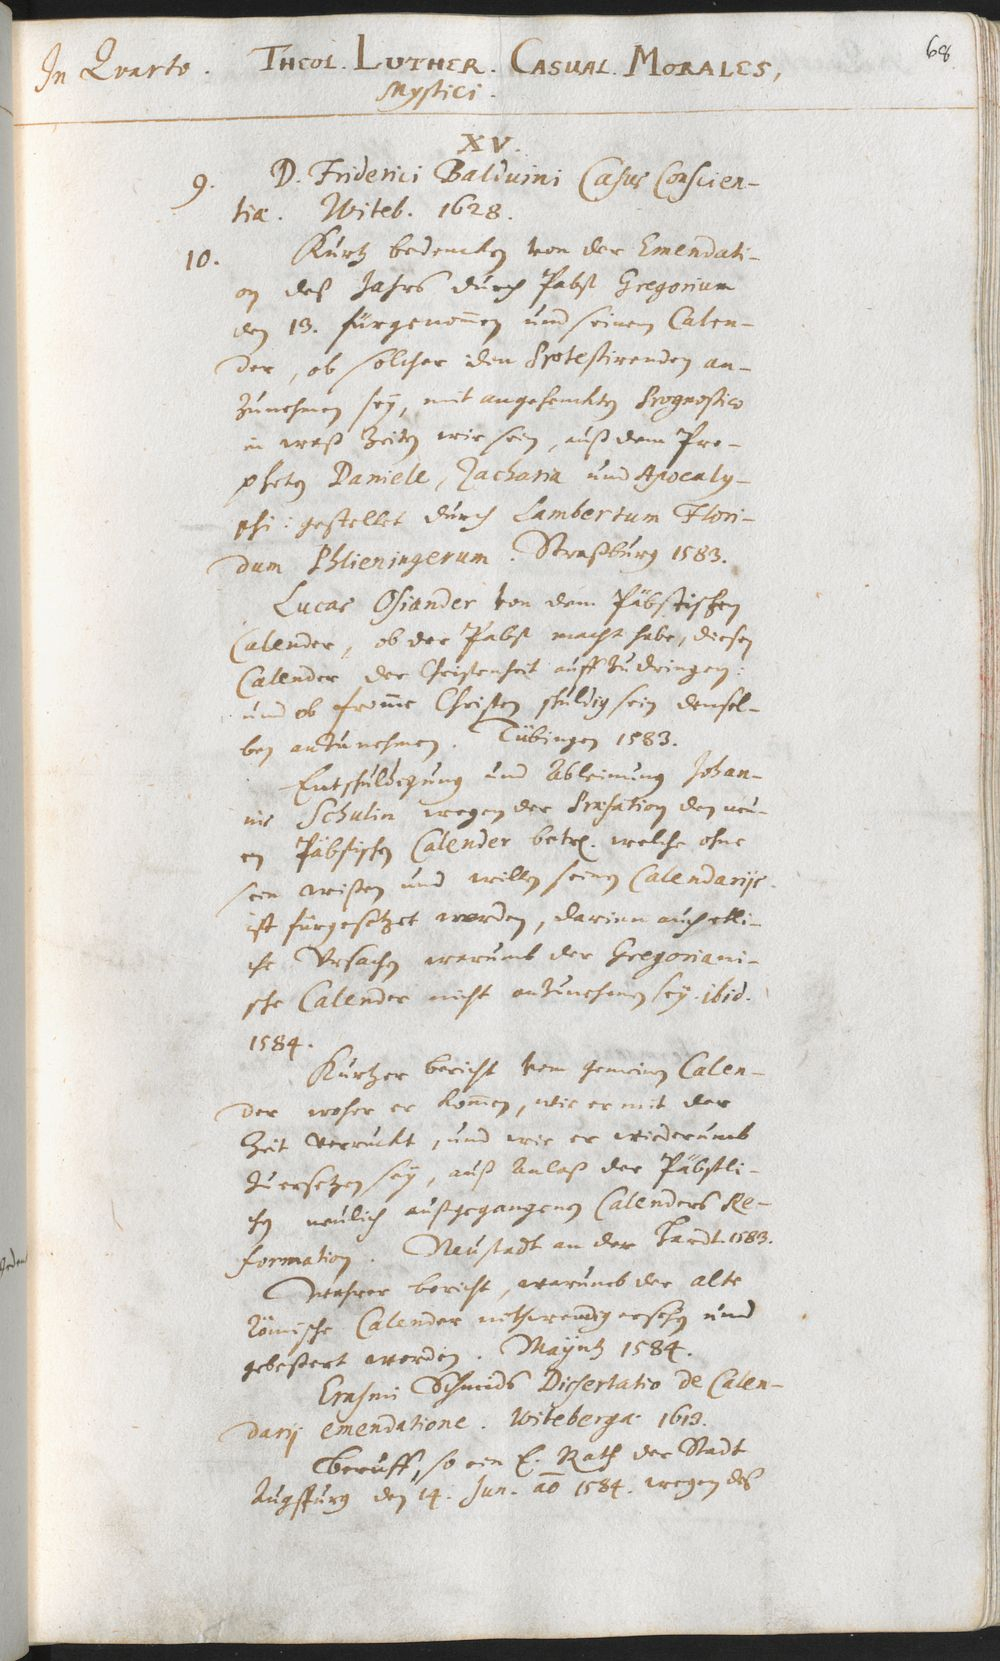 68
In Quarto. THEOL. LUTHER. CASUAL. MORALES,
Mystici.
XV.
9. D. Friderici Balduini Casus Conscien-
tiæ. Witeb. 1628.
10. Kurtz bedencken von der Emendati-
on deß Jahrs durch Pabst Gregorium
den 13. fürgenom̄en und seinem Calen-
der, ob solcher den Protestirenden an-
zunehmen seÿ, mit angehenckten Prognostico
in waß Zeiten wir sein, auß dem Pro-
pheten Daniele, Zacharia und Apocaly-
psi: gestellet durch Lambertum Flori-
dum Plieningerum. Straßburg 1583.
Lucas Osiander von dem Päbstischen
Calender, ob der Pabst macht habe, diesen
Calender der Christenheit auffzudringen:
und ob from̄e Christen schuldig sein densel-
ben anzunehmen. Tübingen 1583.
Entschuldigung und Ableinung Johan-
nis Schulin wegen der Præfation den neu-
en Päbstischen Calender betr. welche ohne
sein wißen und willen seinen Calendarijs
ist fürgesetzet worden, darinn auch etli-
che Ursachen warumb der Gregoriani-
sche Calender nicht anzunehmen seÿ. ibid.
1584.
Kurtzer bericht vom gemeinen Calen-
der woher er kom̄en, wie er mit der
Zeit verruckt, und wie er wiederumb
zu ersetzen seÿ, auß Anlaß der Päbstli-
chen neulich außgegangenen Calenders Re-
formation. Neustadt an der Hardt. 1583.
Wahrer bericht, warumb der alte
Römische Calender nothwendig ersehen und
gebeßert worden. Mäyntz 1584.
Erasmi Schmids Dissertatio de Calen-
darij emendatione. Witebergæ 1613.
Beruff, so ein E. Rath der Stadt
Augspurg den 14. Jun. aō 1584. wegen des